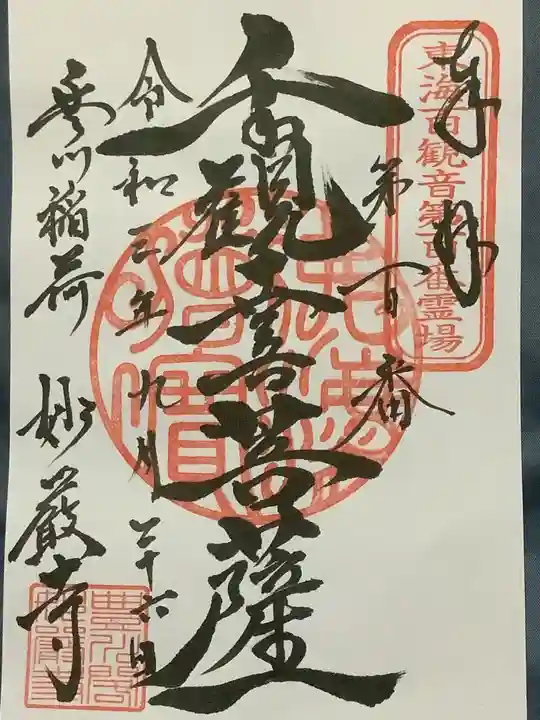 奉拝
東海百観音第百番霊場
第百番
千手観世音菩薩
令和三年九月二十六日
豊川稲荷 妙厳寺